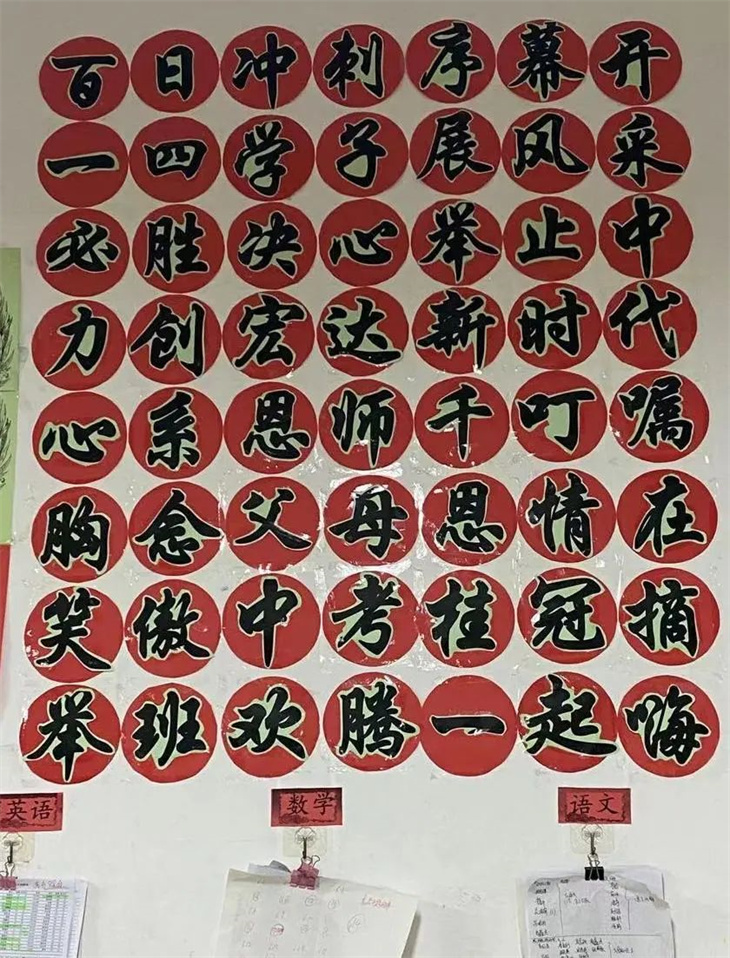 百日冲刺序幕开
一四学子展风采
必胜决心举止中
力创宏达新时代
心系恩师千叮嘱
胸念父母恩情在
笑傲中考桂冠摘
举班欢腾一起嗨
英语
数学
语文